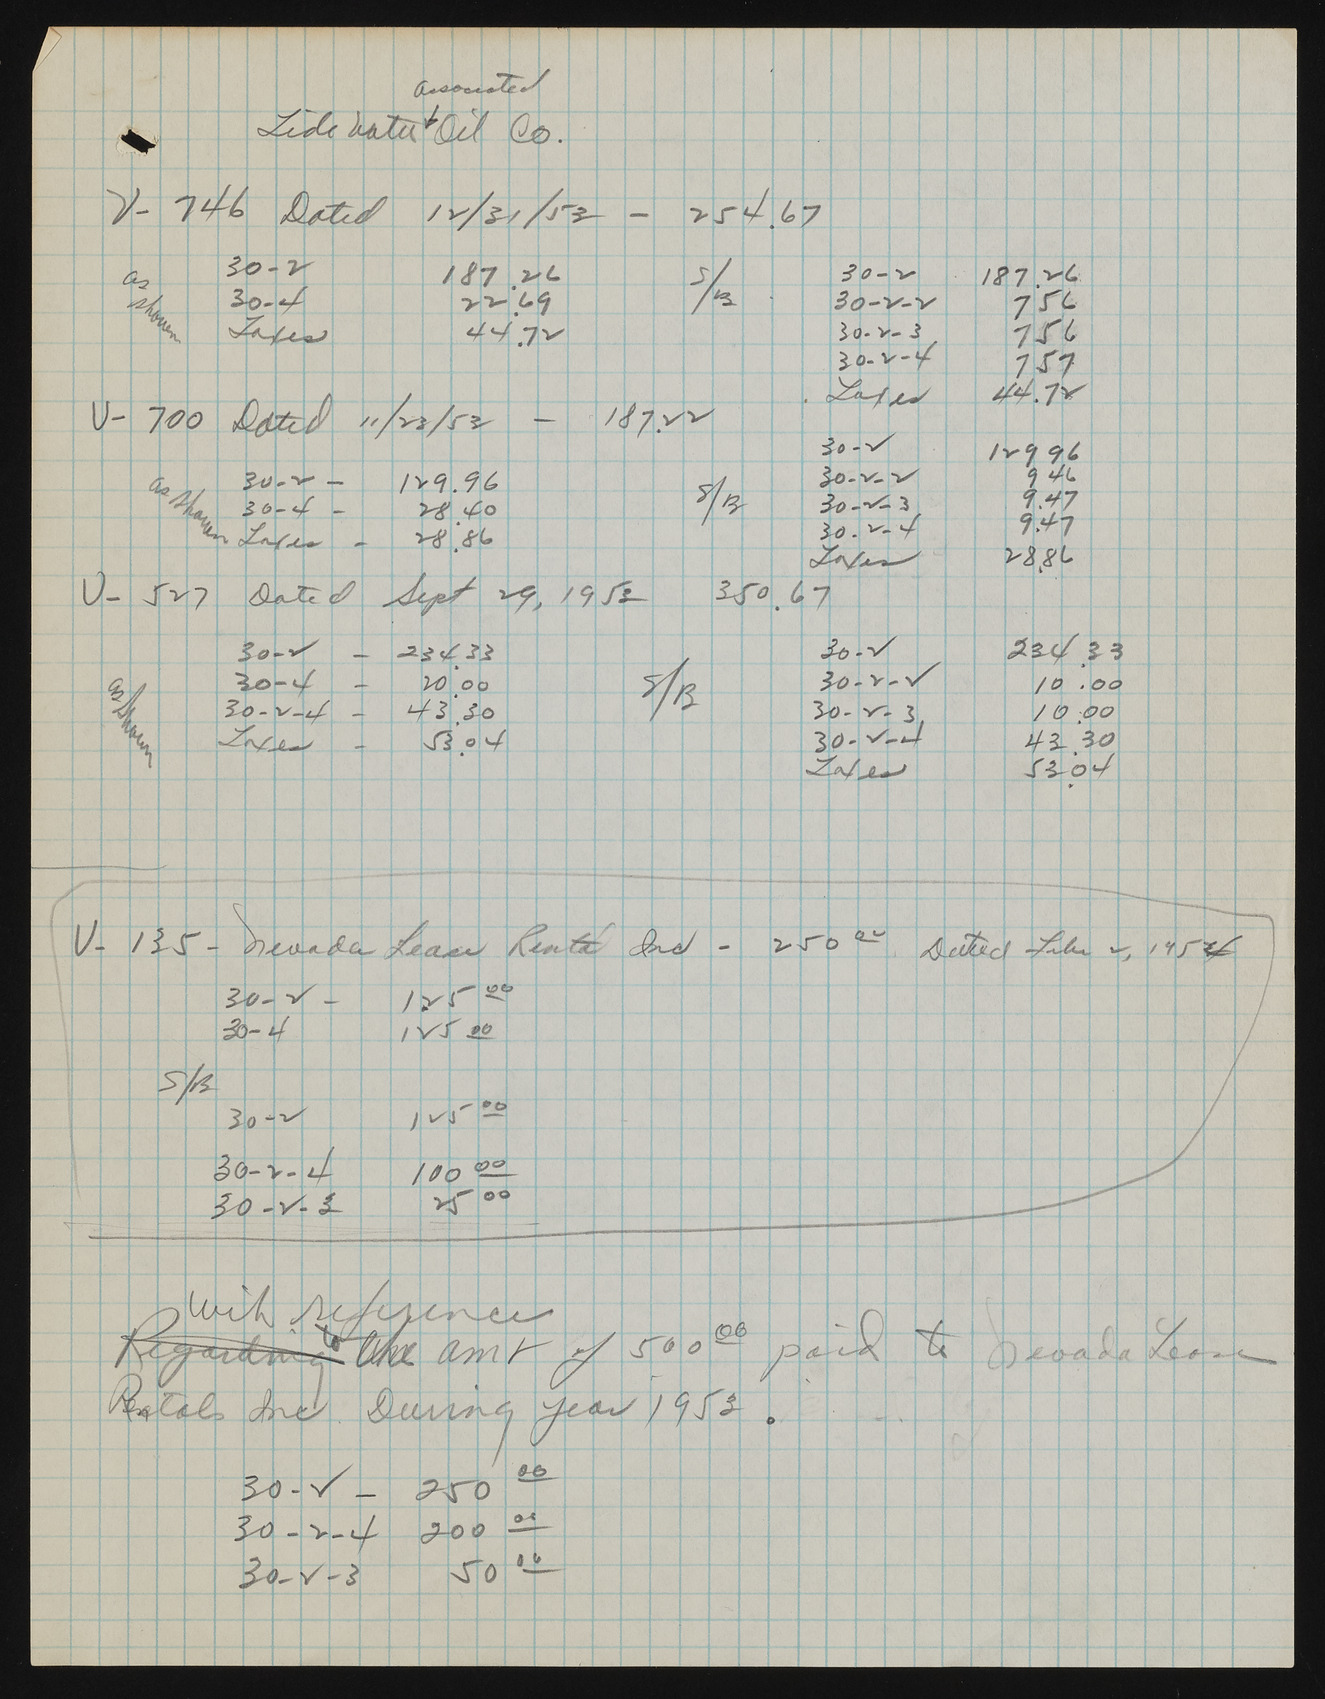 associated
Tidewater Oil Co.
V- 746 Dated 12/31/53 - 254.67
as shown
30-2 187.26
30-4 22.69
Taxes 44.72
S/B
30-2 187.26
30-2-2 7 56
30-2-3 7 56
30-2-4 7 57
Taxes 44.72
V- 700 Dated 11/23/53 - 187.22
as shown
30-2 - 129.96
30-4 - 28.40
Taxes - 28.86
S/B
30-2 129 96
30-2-2 9 46
30-2-3 9.47
30-2-4 9.47
Taxes 28.86
V- 527 Dated Sept 29, 1953 350.67
as shown
30-2 - 234.33
30-4 - 20.00
30-2-4 - 43.30
Taxes - 53.04
S/B
30-2 234.33
30-2-2 10.00
30-2-3 10.00
30-2-4 43.30
Taxes 53.04
V- 135 - Nevada Lease Rental Inc - 250 00 Dated Feb 2, 1954
30-2 - 125 00
30-4 125 00
S/B
30-2 125 00
30-2-4 100 00
30-2-3 25 00
With reference
Regarding to the amt of 500 00 paid to Nevada Lease
Rentals Inc. During year 1953.
30-2 - 250 00
30-2-4 200 00
30-2-3 50 00